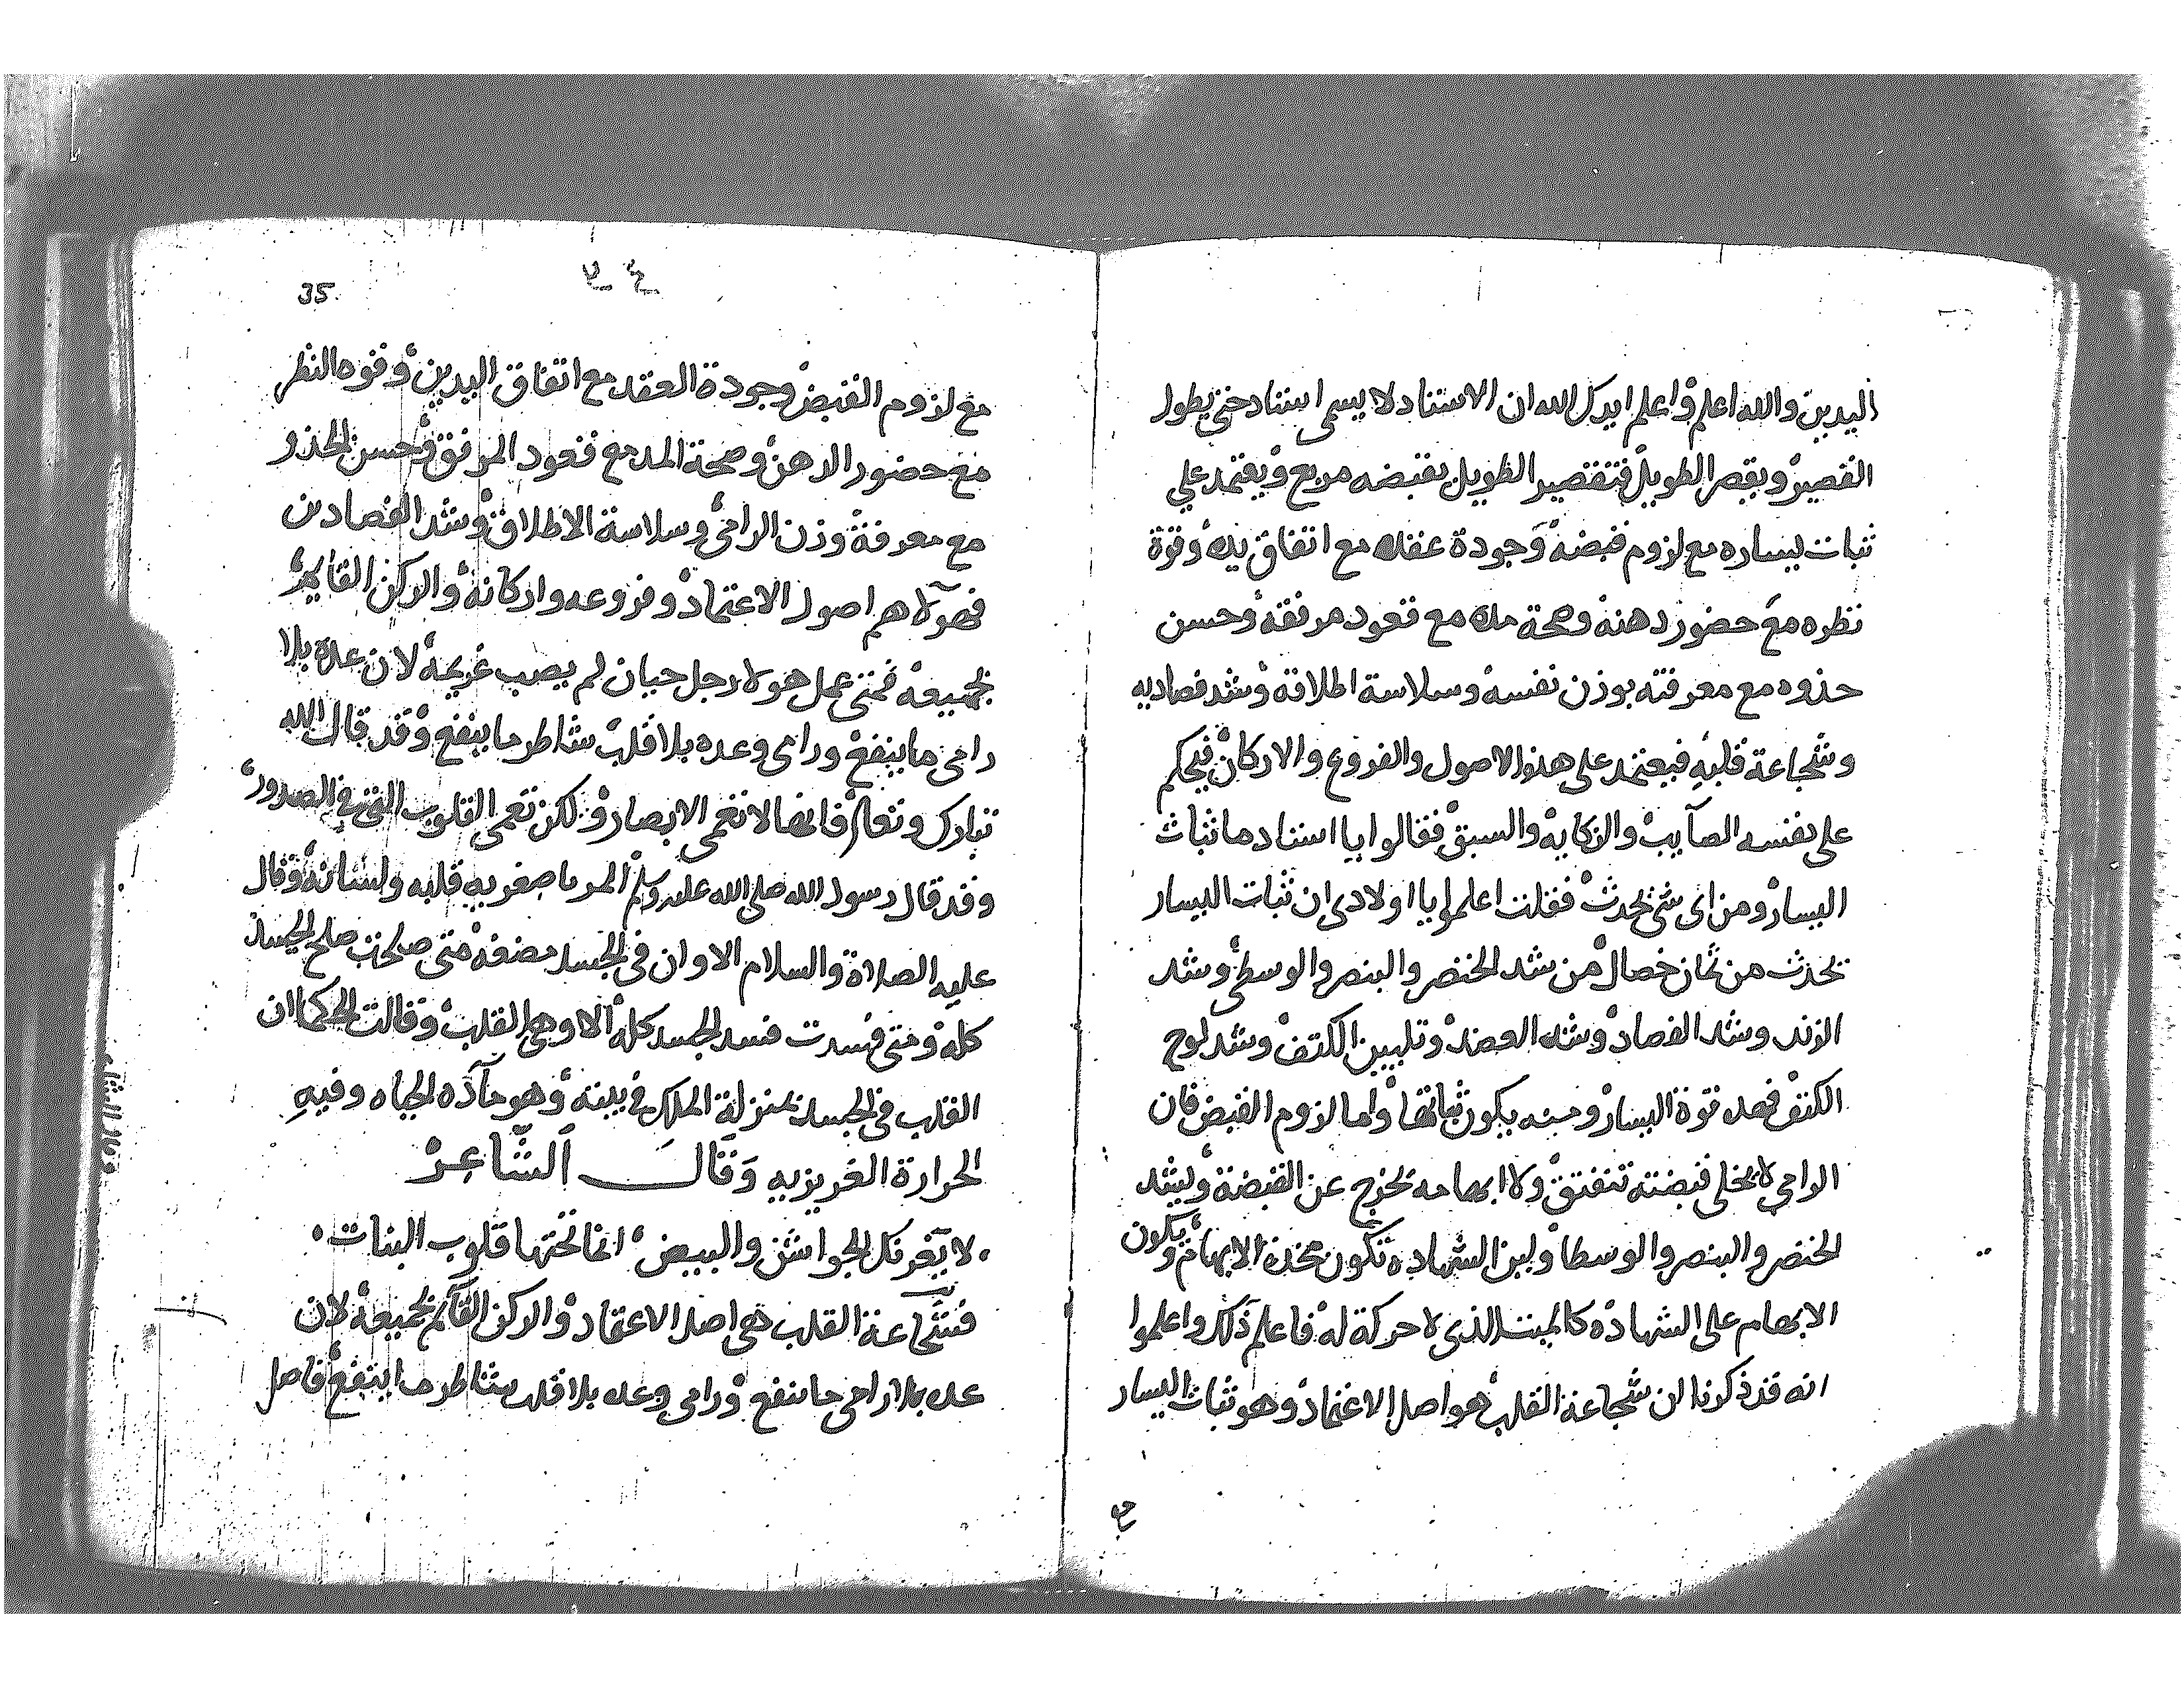 اليدين والله اعلم واعلم ايدك الله ان الاستناد لا يسمى استناد حتى يطول
القصير ويقصر الطويل فتقصير الطويل بقبضه مربع ويعتمد علي
ثبات يساره مع لزوم قبضه وجودة عقده مع اتفاق يده وقوة
نظره مع حضور دهنه وصحة مده مع قعود مرفقه وحسن
حذوه مع معرفته بوزن نفسه وسلاسة اطلاقه وشد فصاديه
وشجاعة قلبه فيعتمد على هذه الاصول والفروع والاركان فيحكم
على نفسه الصآيب والنكايه والسبق فقالوا يا استاد ما ثبات
اليسار ومن اى شى يحدث فقلت اعلموا يا اولادى ان ثبات اليسار
يحدث من ثمان خصال من شد الخنصر والبنصر والوسطى وشد
الزند وشد الفصاد وشد العضد وتليين الكتف وشد لوح
الكتف فهده قوة اليسار ومنه يكون ثباتها واما لزوم القبض فان
الرامي لا يخلى قبضته تنفتق ولا ابهامه يخرج عن القبضة ويشد
الخنصر والبنصر والوسطا ولين الشهاده تكون مخدة الابهام ويكون
الابهام على الشهاده كالميت الذى لا حركة له فاعلم ذلك واعلموا
انه قد ذكرنا ان شجاعة القلب هو اصل الاعتماد وهو ثبات اليسار
مع
35
٣٤
مع لزوم القبض وجودة العقد مع اتفاق اليدين وقوه النظر
مع حضور الدهن وصحة المد مع قعود المرفق وحسن الحذو
مع معرفة وزن الرامى وسلاسة الاطلاق وشد الفصادين
فهولآ هم اصول الاعتماد وفروعه واركانه والركن القايم
بجميعه فمتى عمل هولا رجل جبان لم يصب غريمه لان عده بلا
رامى ما ينفع ورامى وعده بلا قلب شاطر ما ينفع وقد قال الله
تبارك وتعالى فانها لا تعمى الابصار ولكن تعمى القلوب التى في الصدور
وقد قال رسول الله صلى الله عليه وسلم المر باصغريه قلبه ولسانه وقال
عليه الصلاة والسلام الا وان فى الجسد مضغه متى صلحت صلح الجسد
كله ومتى فسدت فسد الجسد كله الا وهى القلب وقالت الحكما ان
القلب فى الجسد بمنزلة الملك في بيته وهو مآدة الحياه وفيه
الحرارة الغريزيه وقال الشاعر
لا يغرنك الجواشن والبيض انما تحتها قلوب البنات
فشجاعة القلب هى اصل الاعتماد والركن القآيم بجميعه لان
عده بلا رامى ما ينفع ورامى وعده بلا قلب شاطر ما ينفع فاصل